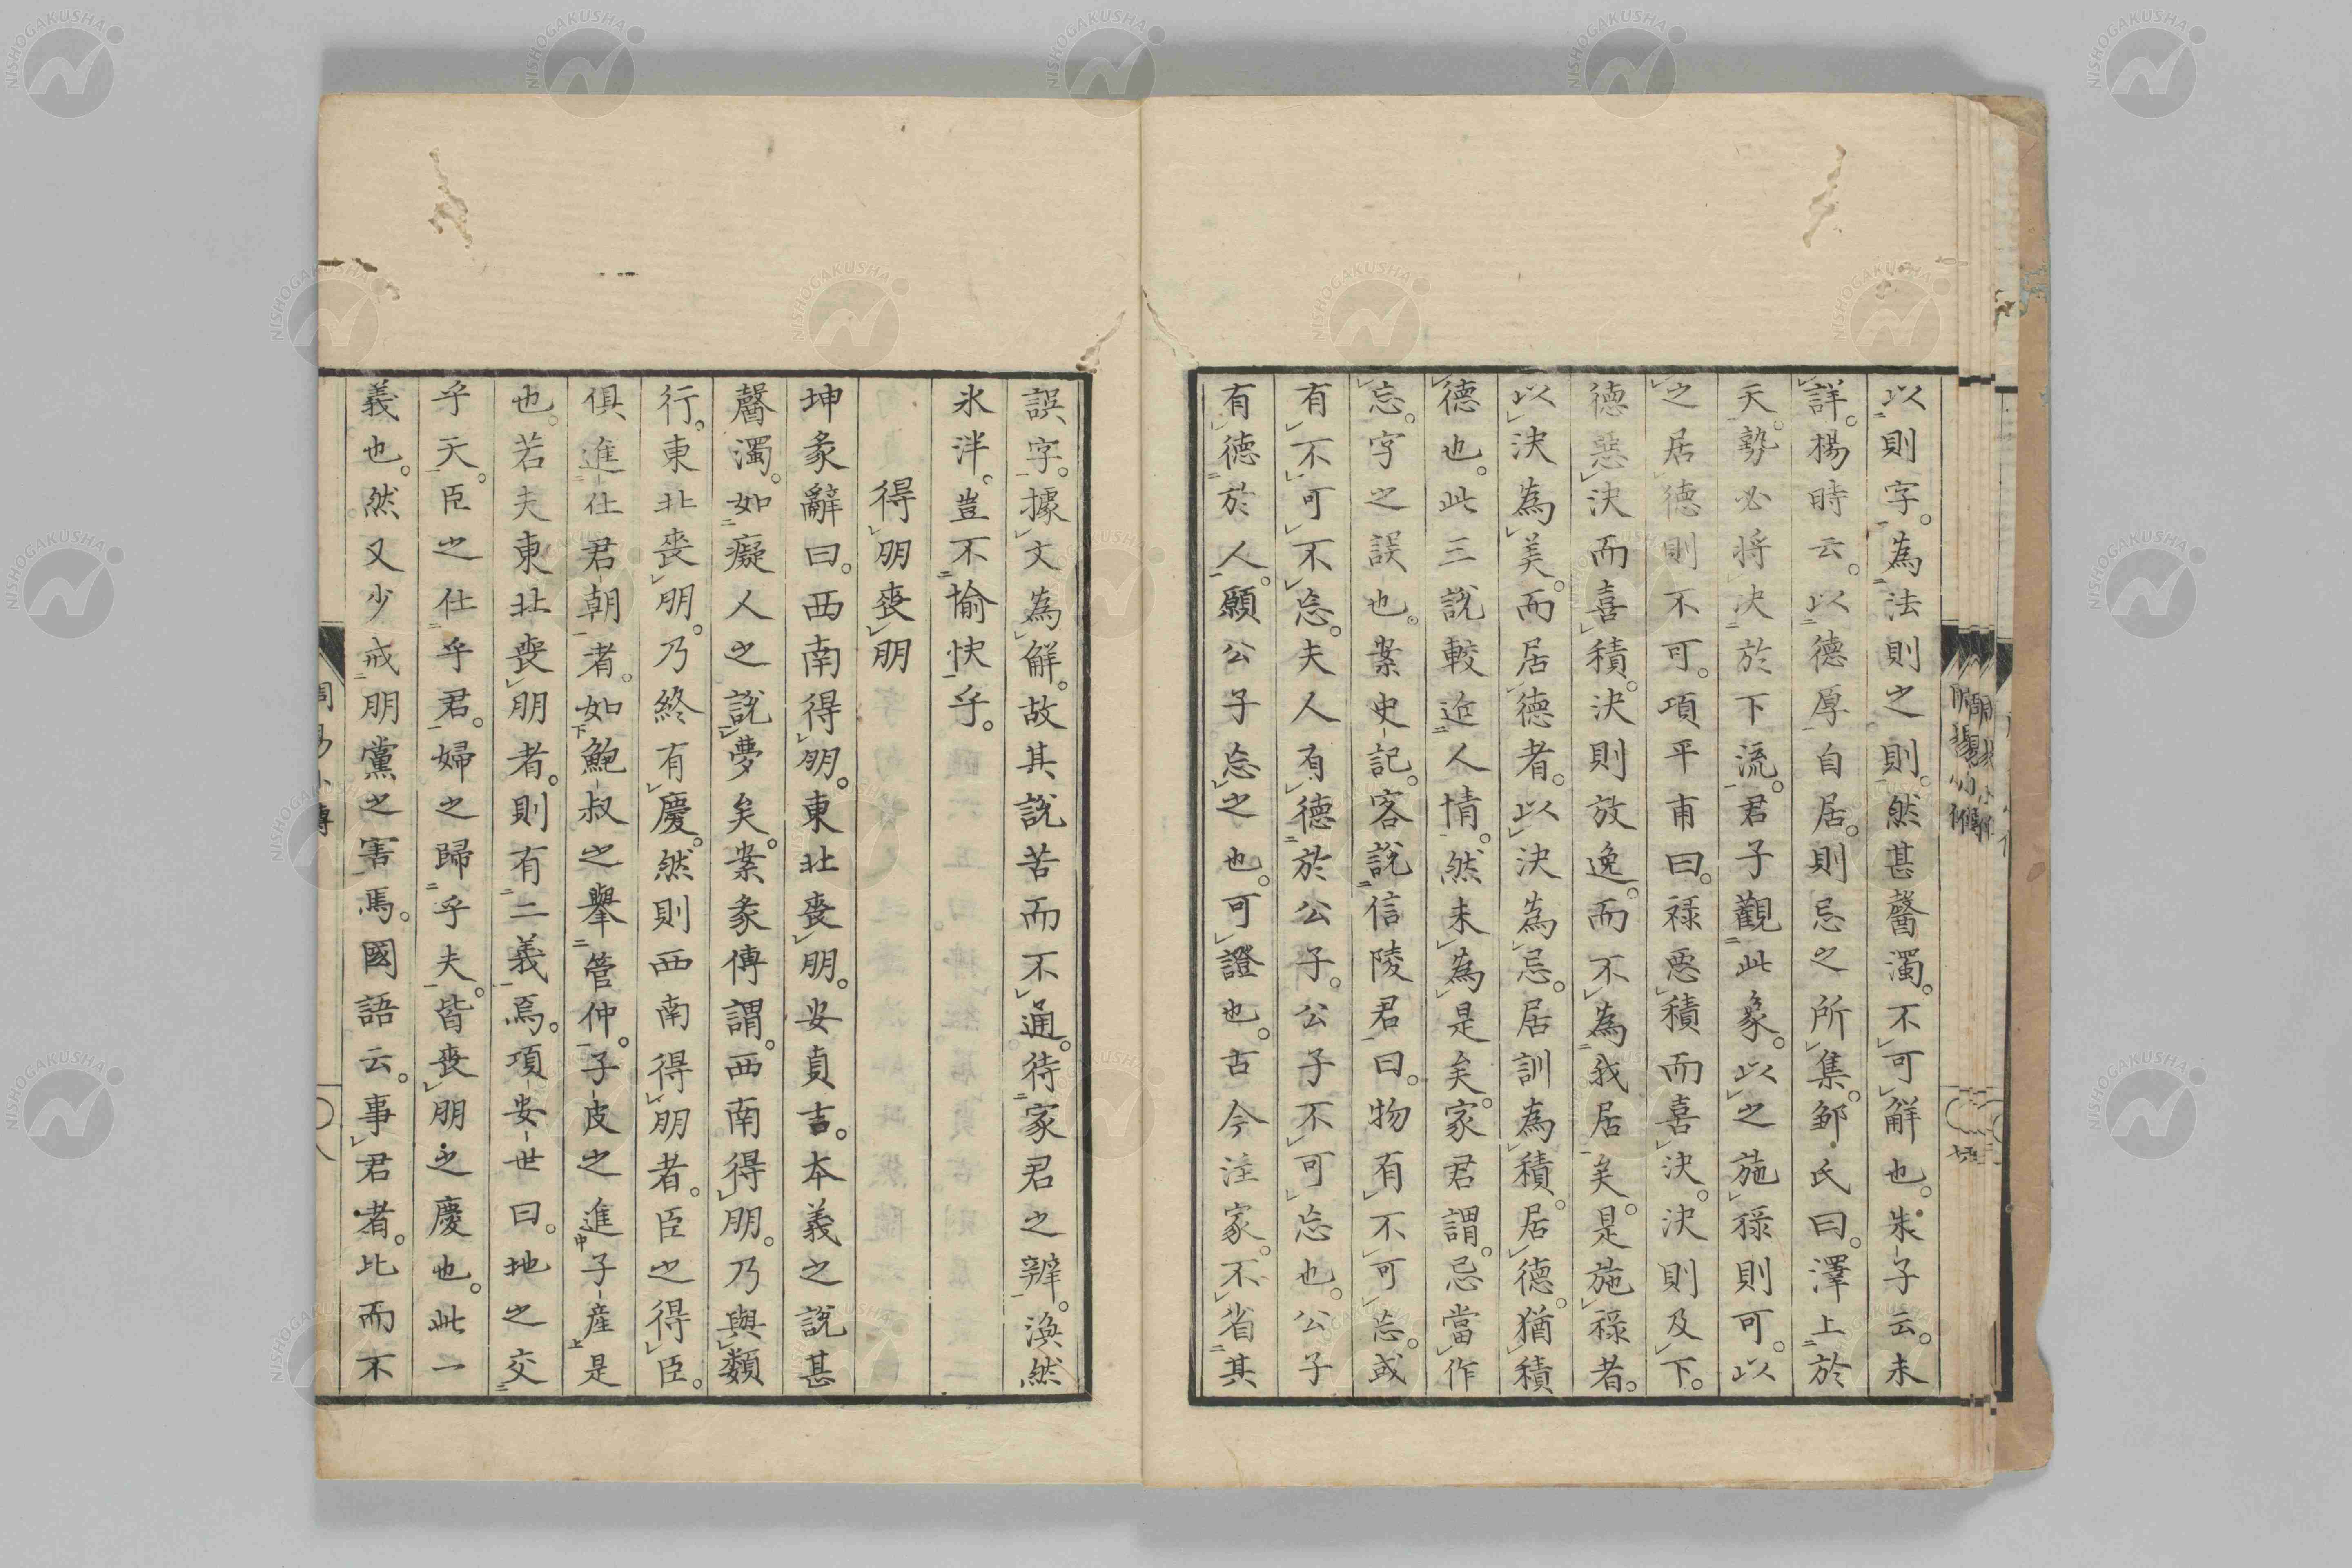 以則字。為法則之則。然甚醫濁。不可解也。朱子云。未
詳。楊時云。以德厚自居。則忌之所集。邹氏曰。澤上於
天。勢必將決於下流。君子觀此象。以之施祿則可。以
之居德則不可。項平甫曰。祿惡積而喜決。決則及下。
德惡決而喜積。決則放逸。而不為我居矣。是施祿者。
以決為美。而居德者。以決為忌。居訓為積。居德。猶積
德也。此三說較近人情。然未為是矣。家君謂。忌當作
忘。字之誤也。案史記。客說信陵君曰。物有不可忘。或
有不可不忘。夫人有德於公子。公子不可忘也。公子
有德於人。願公子忘之也。可證也。古今注家。不省其
誤字。據文為解。故其說苦而不通。待家君之辨。渙然
氷泮。豈不愉快乎。
得朋喪朋
坤彖辭曰。西南得朋。東北喪朋。安貞吉。本義之說甚
醫濁。如癡人之說夢矣。案彖傳謂。西南得朋。乃與類
行。東北喪朋。乃終有慶。然則西南得朋者。臣之得臣。
俱進仕君朝者。如鮑叔之舉管仲。子皮之進子產是
也。若夫東北喪朋者。則有二義焉。項安世曰。地之交
乎天。臣之仕乎君。婦之歸乎夫。皆喪朋之慶也。此一
義也。然又少戒朋黨之害焉。國語云。事君者。比而不